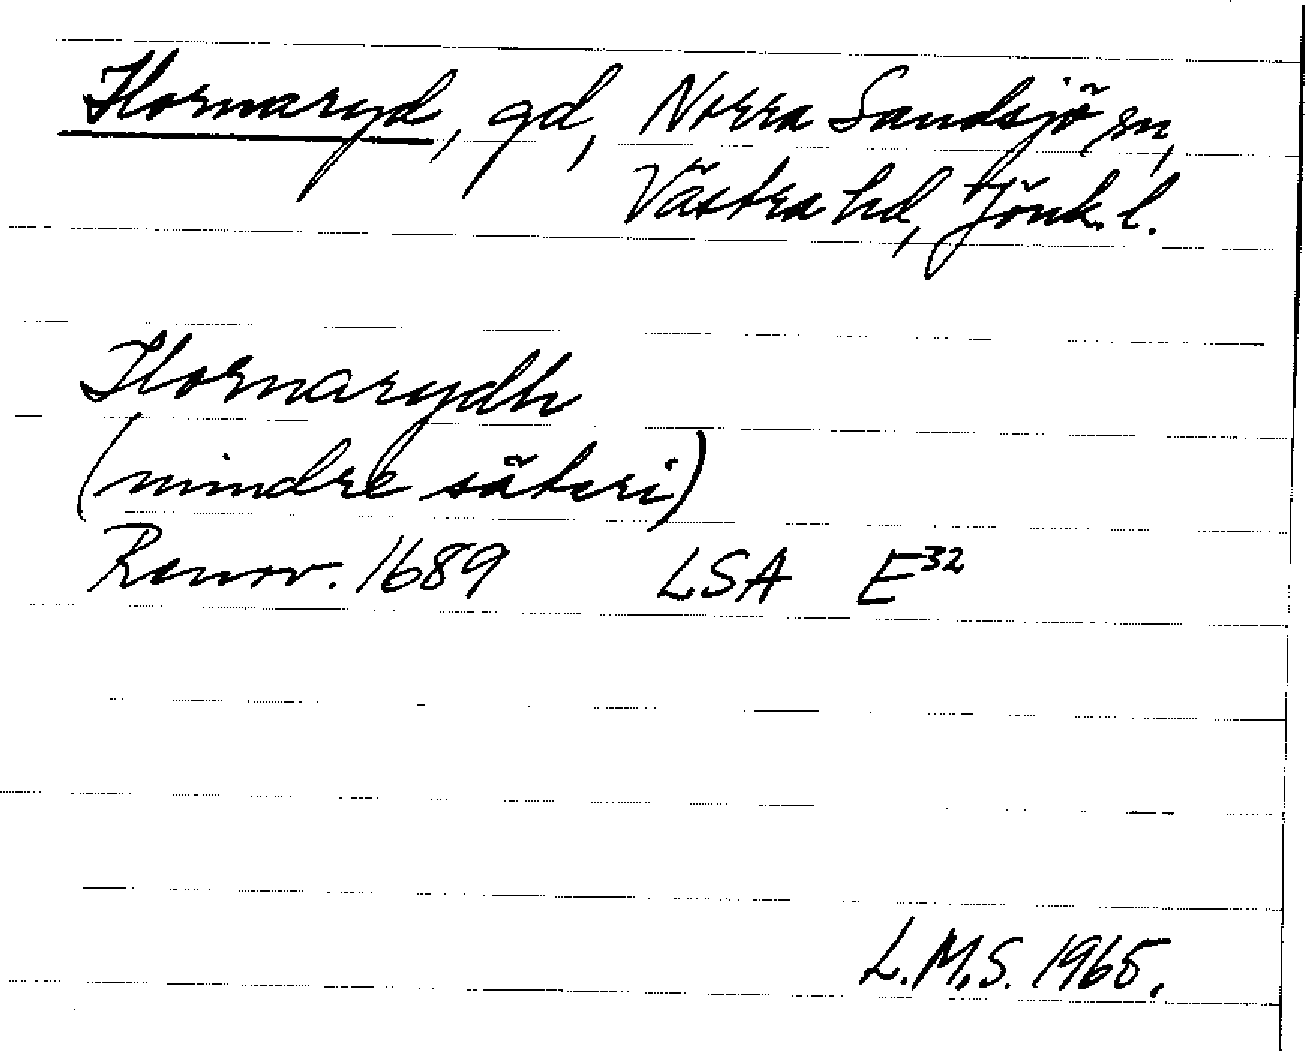 Hornaryd, gd, Norra Sandsjö sn,
Västra hd, Jönk. l.
Hornarydh
(mindre säteri)
Renov. 1689 LSA E32
L.M.S. 1965.